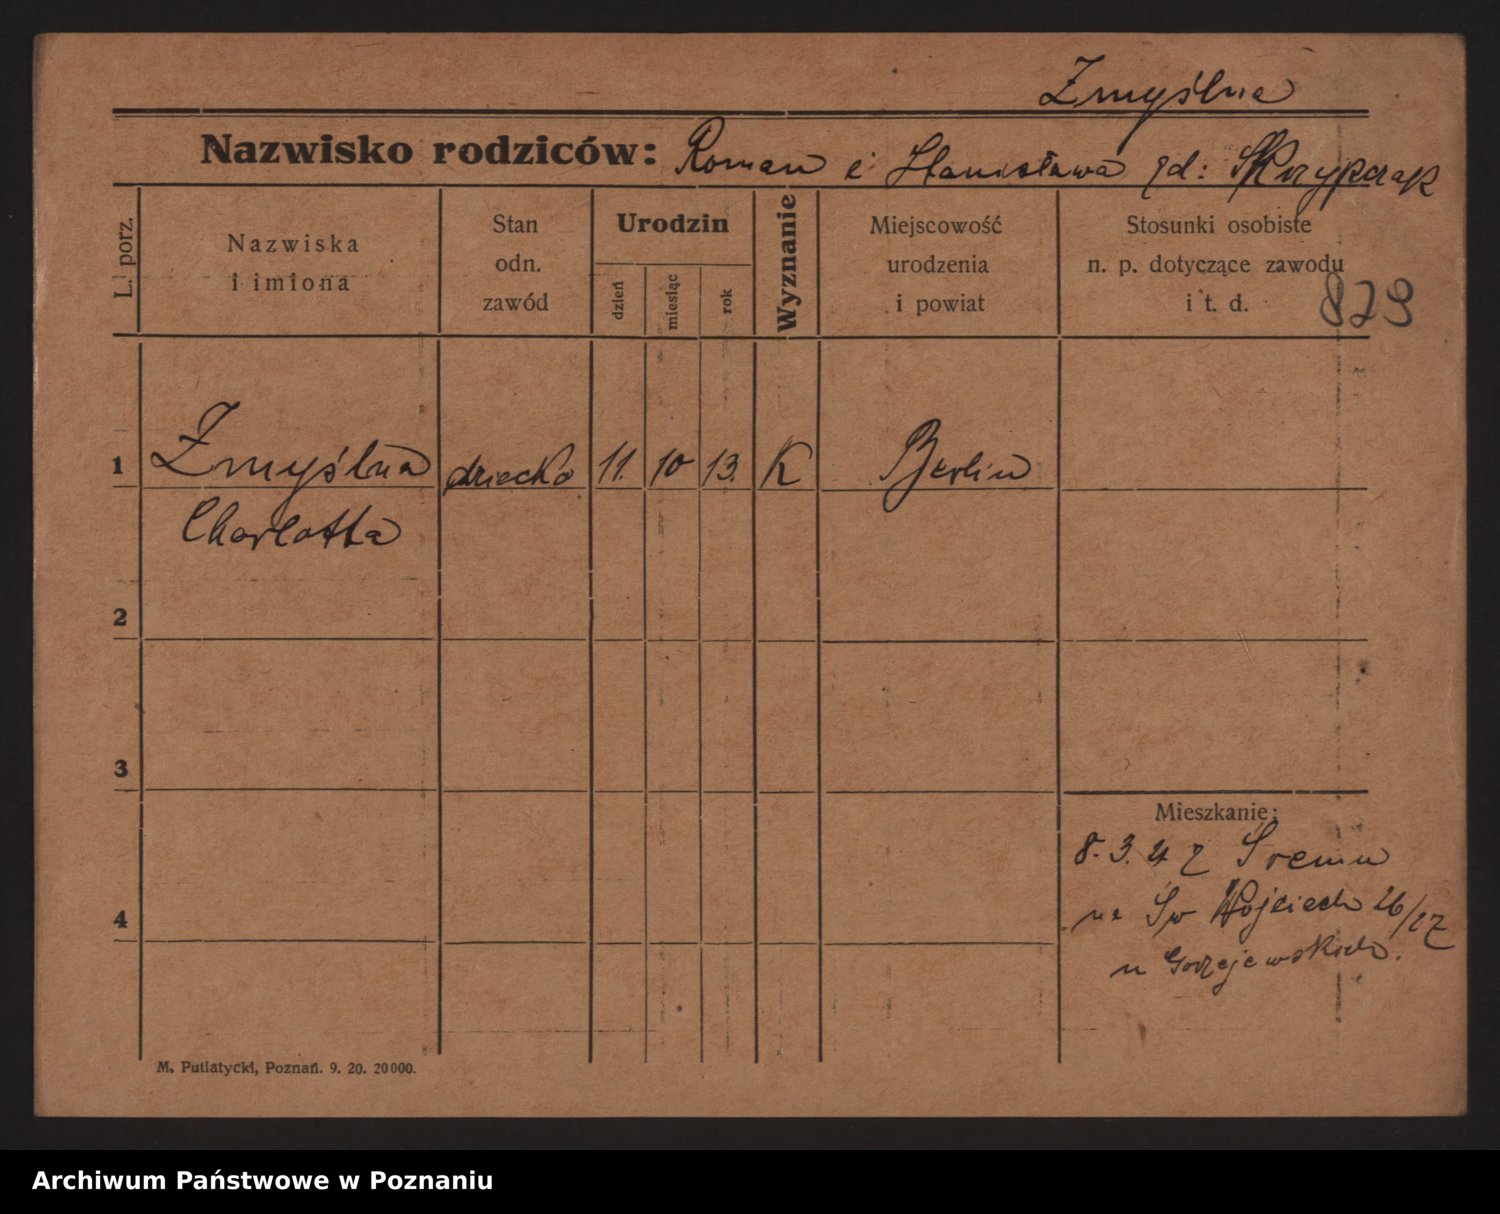 Zmyślna
Nazwisko rodziców: Roman i Stanisława zd: Skrzypczak
L. porz.
Nazwiska
i imiona
Stan
odn.
zawód
Urodzin
dzień
miesiąc
rok
Wyznanie
Miejscowość
urodzenia
i powiat
Stosunki osobiste
n. p. dotyczące zawodu
i t. d.
829
1 Zmyślna dziecko 11. 10 13. K Berlin
Charlotta
2
3
4
Mieszkanie:
8. 3. 21 z Śremu
na Św Wojciech 26/27
u
M. Putiatycki, Poznań. 9. 20. 20000.
Archiwum Państwowe w Poznaniu